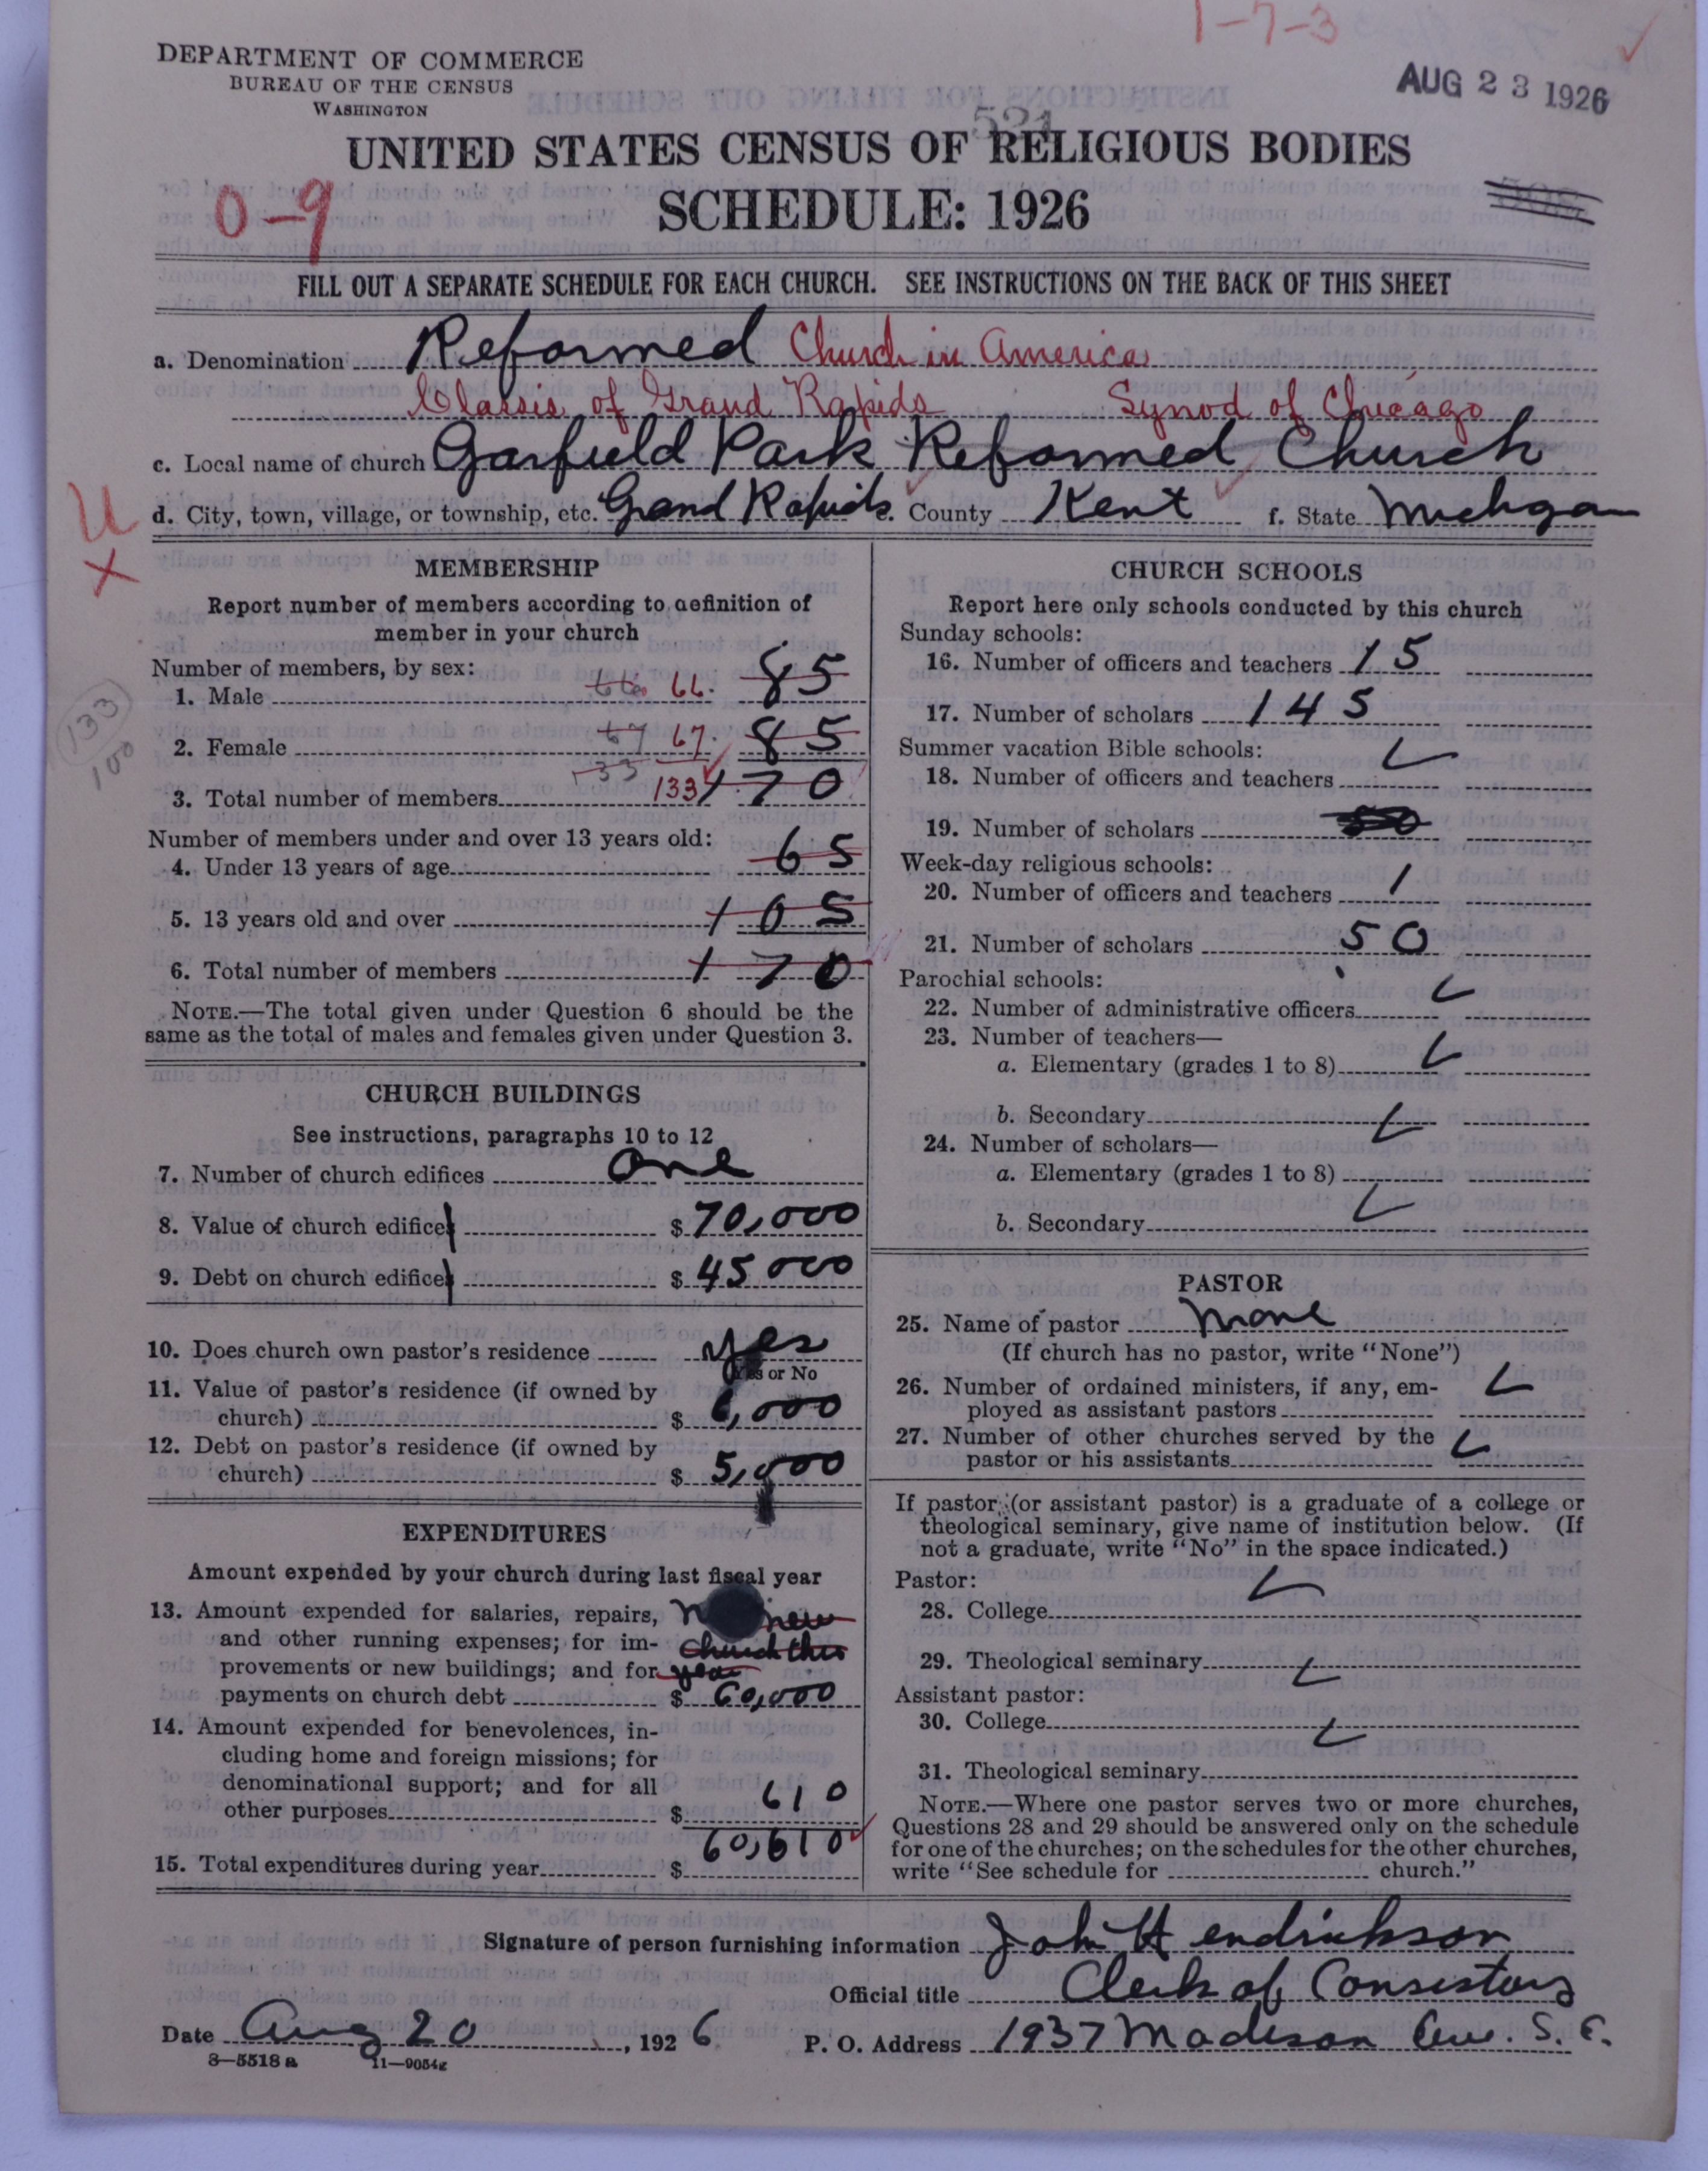 1-7-3
DEPARTMENT OF COMMERCE
BUREAU OF THE CENSUS
WASHINGTON
AUG 23 1926
531
UNITED STATES CENSUS OF RELIGIOUS BODIES
SCHEDULE: 1926
0-9
FILL OUT A SEPARATE SCHEDULE FOR EACH CHURCH. SEE INSTRUCTIONS ON THE BACK OF THIS SHEET
a. Denomination Reformed Church in America
Classis of Grand Rapids Synod of Chicago
c. Local name of church Garfield Park Reformed Church
U d. City, town, village, or township, etc. Grand Rapids e. County Kent f. State Michgan
X
MEMBERSHIP
Report number of members according to definition of
member in your church
Number of members, by sex:
1. Male 66 66. 85
2. Female 67 67. 85
133
100
3. Total number of members 133 133 170
Number of members under and over 13 years old:
4. Under 13 years of age 65
5. 13 years old and over 105
6. Total number of members 170
NOTE.—The total given under Question 6 should be the
same as the total of males and females given under Question 3.
CHURCH BUILDINGS
See instructions, paragraphs 10 to 12
7. Number of church edifices one
8. Value of church edifice $ 70,000
9. Debt on church edifice $ 45 000
10. Does church own pastor's residence yes
Yes or No
11. Value of pastor's residence (if owned by
church) $ 6,000
12. Debt on pastor's residence (if owned by
church) $ 5,000
EXPENDITURES
Amount expended by your church during last fiscal year
13. Amount expended for salaries, repairs, new
and other running expenses; for im- church this
provements or new buildings; and for year
payments on church debt $ 60,000
14. Amount expended for benevolences, in-
cluding home and foreign missions; for
denominational support; and for all
other purposes $ 610
15. Total expenditures during year $ 60,610
CHURCH SCHOOLS
Report here only schools conducted by this church
Sunday schools:
16. Number of officers and teachers 15
17. Number of scholars 145
Summer vacation Bible schools:
18. Number of officers and teachers
19. Number of scholars 50
Week-day religious schools:
20. Number of officers and teachers 1
21. Number of scholars 50
Parochial schools:
22. Number of administrative officers
23. Number of teachers—
a. Elementary (grades 1 to 8)
b. Secondary
24. Number of scholars—
a. Elementary (grades 1 to 8)
b. Secondary
PASTOR
25. Name of pastor None
(If church has no pastor, write "None")
26. Number of ordained ministers, if any, em-
ployed as assistant pastors
27. Number of other churches served by the
pastor or his assistants
If pastor (or assistant pastor) is a graduate of a college or
theological seminary, give name of institution below. (If
not a graduate, write "No" in the space indicated.)
Pastor:
28. College
29. Theological seminary
Assistant pastor:
30. College
31. Theological seminary
NOTE.—Where one pastor serves two or more churches,
Questions 28 and 29 should be answered only on the schedule
for one of the churches; on the schedules for the other churches,
write "See schedule for church."
Signature of person furnishing information John Hendrickson
Official title Clerk of Consistory
Date Aug 20, 1926 P. O. Address 1937 Madison Ave. S. E.
8—5518 a 11—9054g